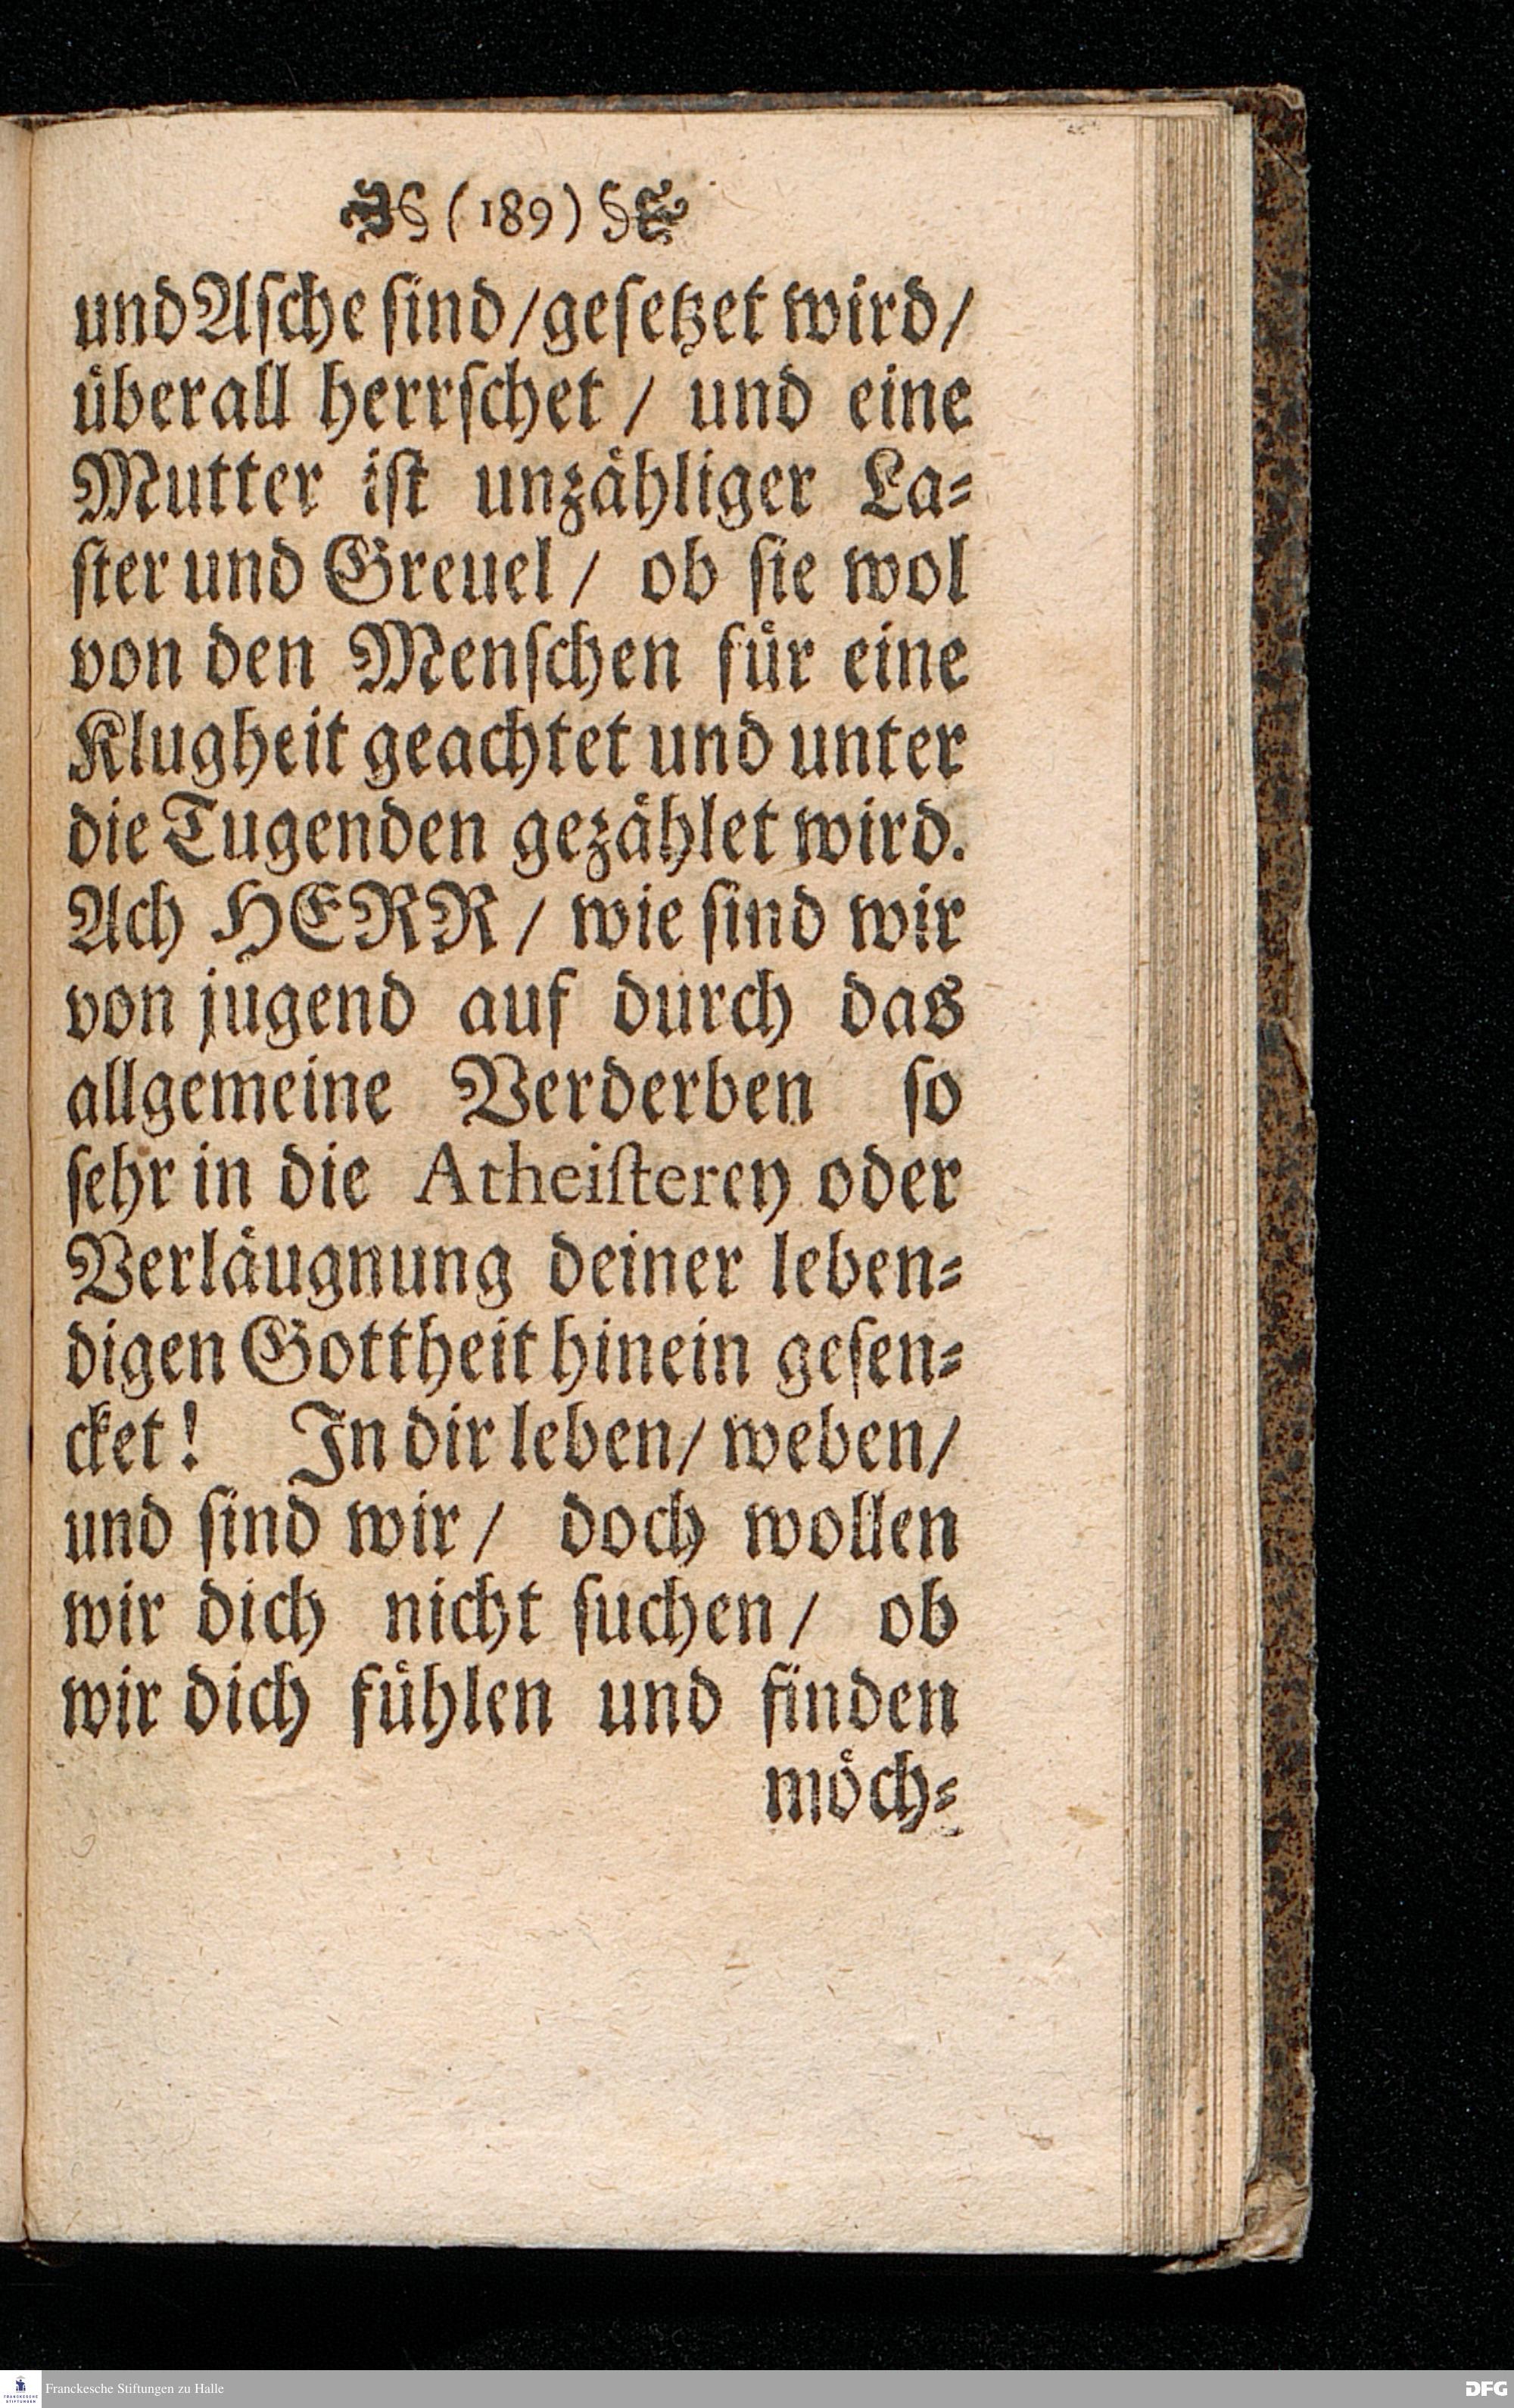 (189)
und Aſche ſind/ geſetzet wird/
uͤberall herrſchet/ und eine
Mutter iſt unzaͤhliger La⸗
ſter und Greuel/ ob ſie wol
von den Menſchen fuͤr eine
Klugheit geachtet und unter
die Tugenden gezaͤhlet wird.
Ach HERR/ wie ſind wir
von jugend auf durch das
allgemeine Verderben ſo
ſehr in die Atheiſterey oder
Verlaͤugnung deiner leben⸗
digen Gottheit hinein geſen⸗
cket! In dir leben/ weben/
und ſind wir/ doch wollen
wir dich nicht ſuchen/ ob
wir dich fuͤhlen und finden
moͤch⸗
FRANCKESCHE STIFTUNGEN
Franckesche Stiftungen zu Halle
DFG